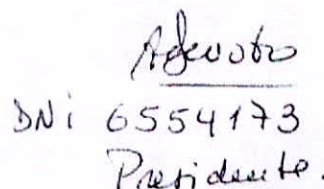 DNi 6554173
Presidente.